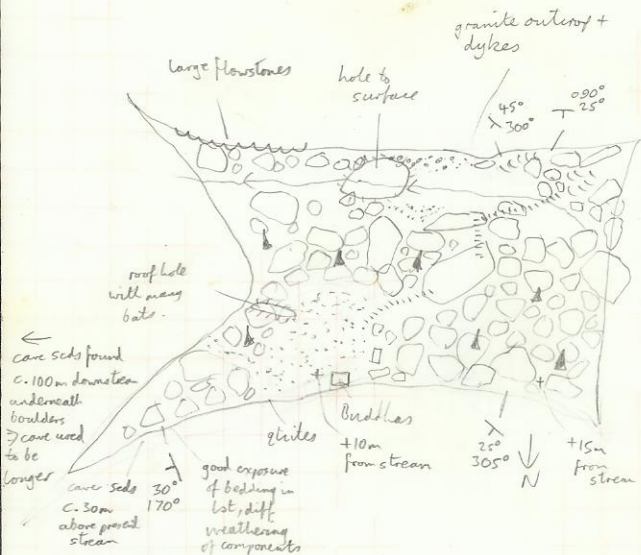 granite outcrop +
dykes
large flowstones
hole to
surface
45°
300°
090°
25°
roof hole
with many
bats.
←
cave seds found
c. 100m downstream
underneath
boulders
⇒ cave used
to be
longer
cave seds
c. 30m
above present
stream
30°
170°
good exposure
of bedding in
lst, diff
weathering
of components
qtzites
Buddhas
+10m
from stream
25°
305°
N
+15m
from
stream